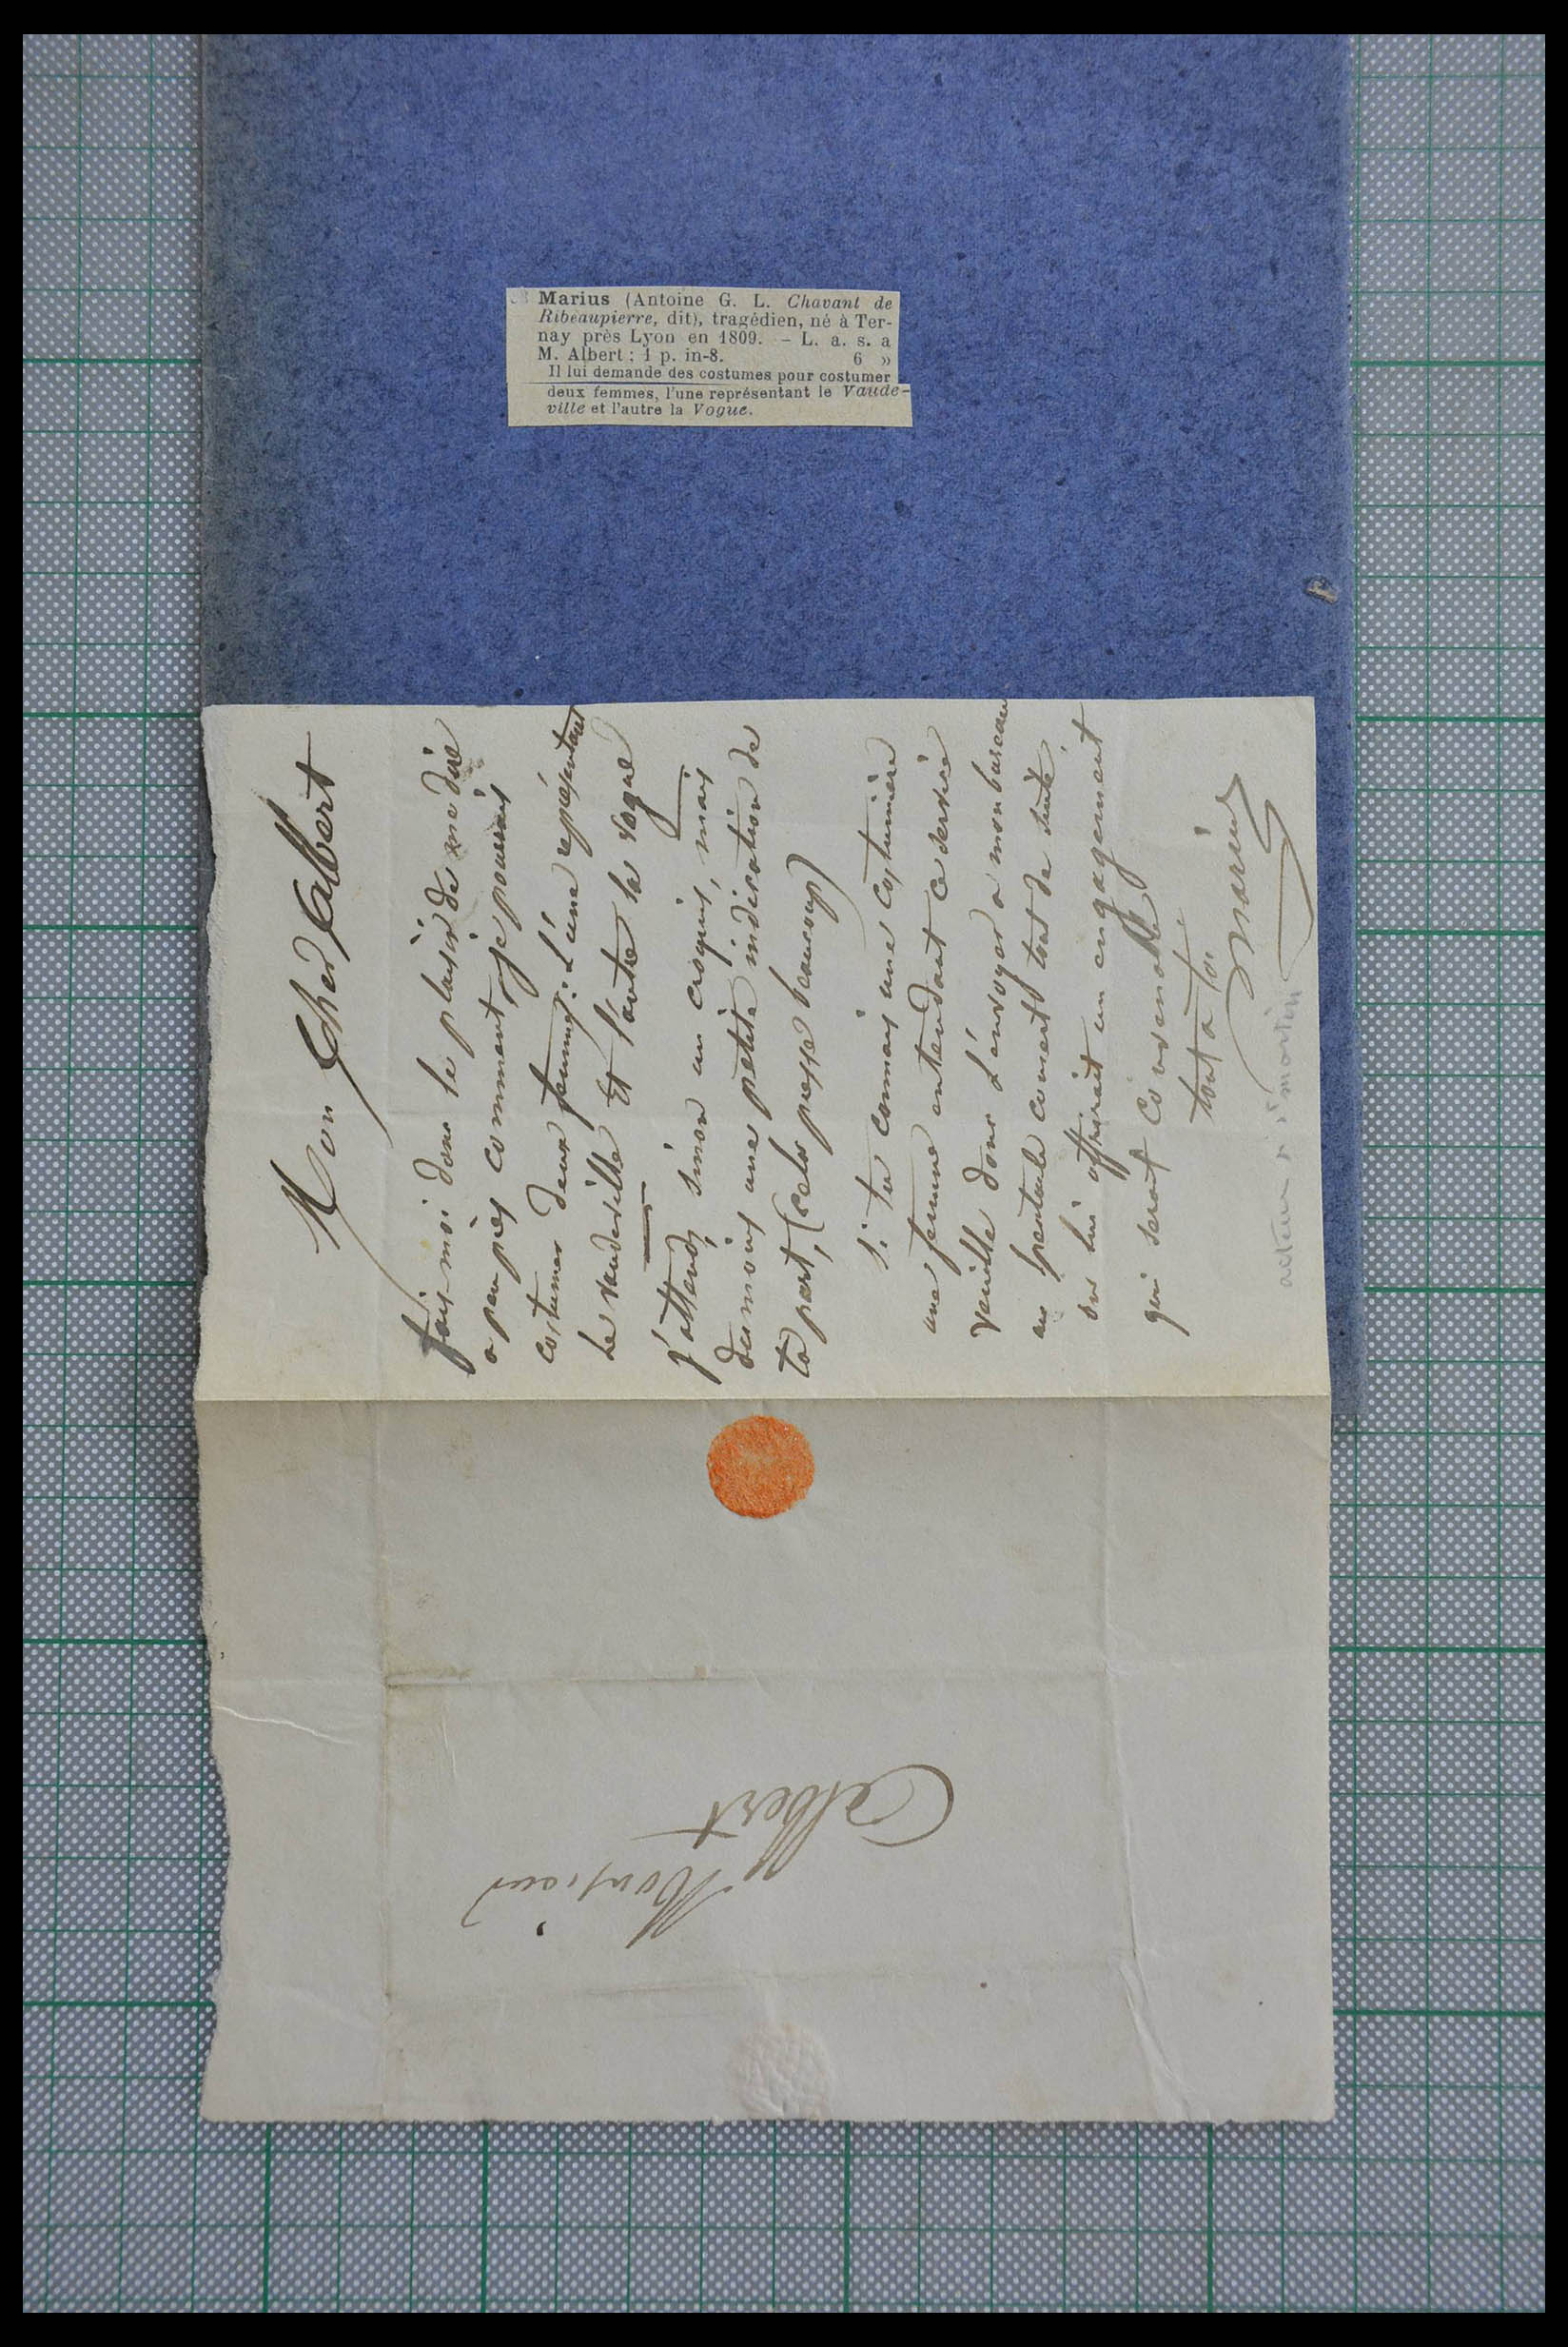 Marius (Antoine G. L. Chavant de
Ribeaupierre, dit), tragédien, né à Ter-
nay près Lyon en 1809. – L. a. s. a
M. Albert; 1 p. in-8. 6 »
Il lui demande des costumes pour costumer
deux femmes, l'une représentant le Vaude-
ville et l'autre la Vogue.
Mon Cher Albert
fais-moi donc le plaisir de me dire
a peu près comment je pourrais
costumer deux femmes: L'une représentant
Le Vaudeville Et l'autre la Vogue
j'attends, sinon un croquis, mais
du moins une petite indication de
ta part, (cela presse beaucoup)
si tu connais une costumière
une femme entendant ce service
veuille donc L'envoyer a mon bureau
au spectacle couvert tout de suite,
on lui offrirait un engagement
qui serait Convenable
tout a toi
Marius
acteur St martin
Monsieur
Albert